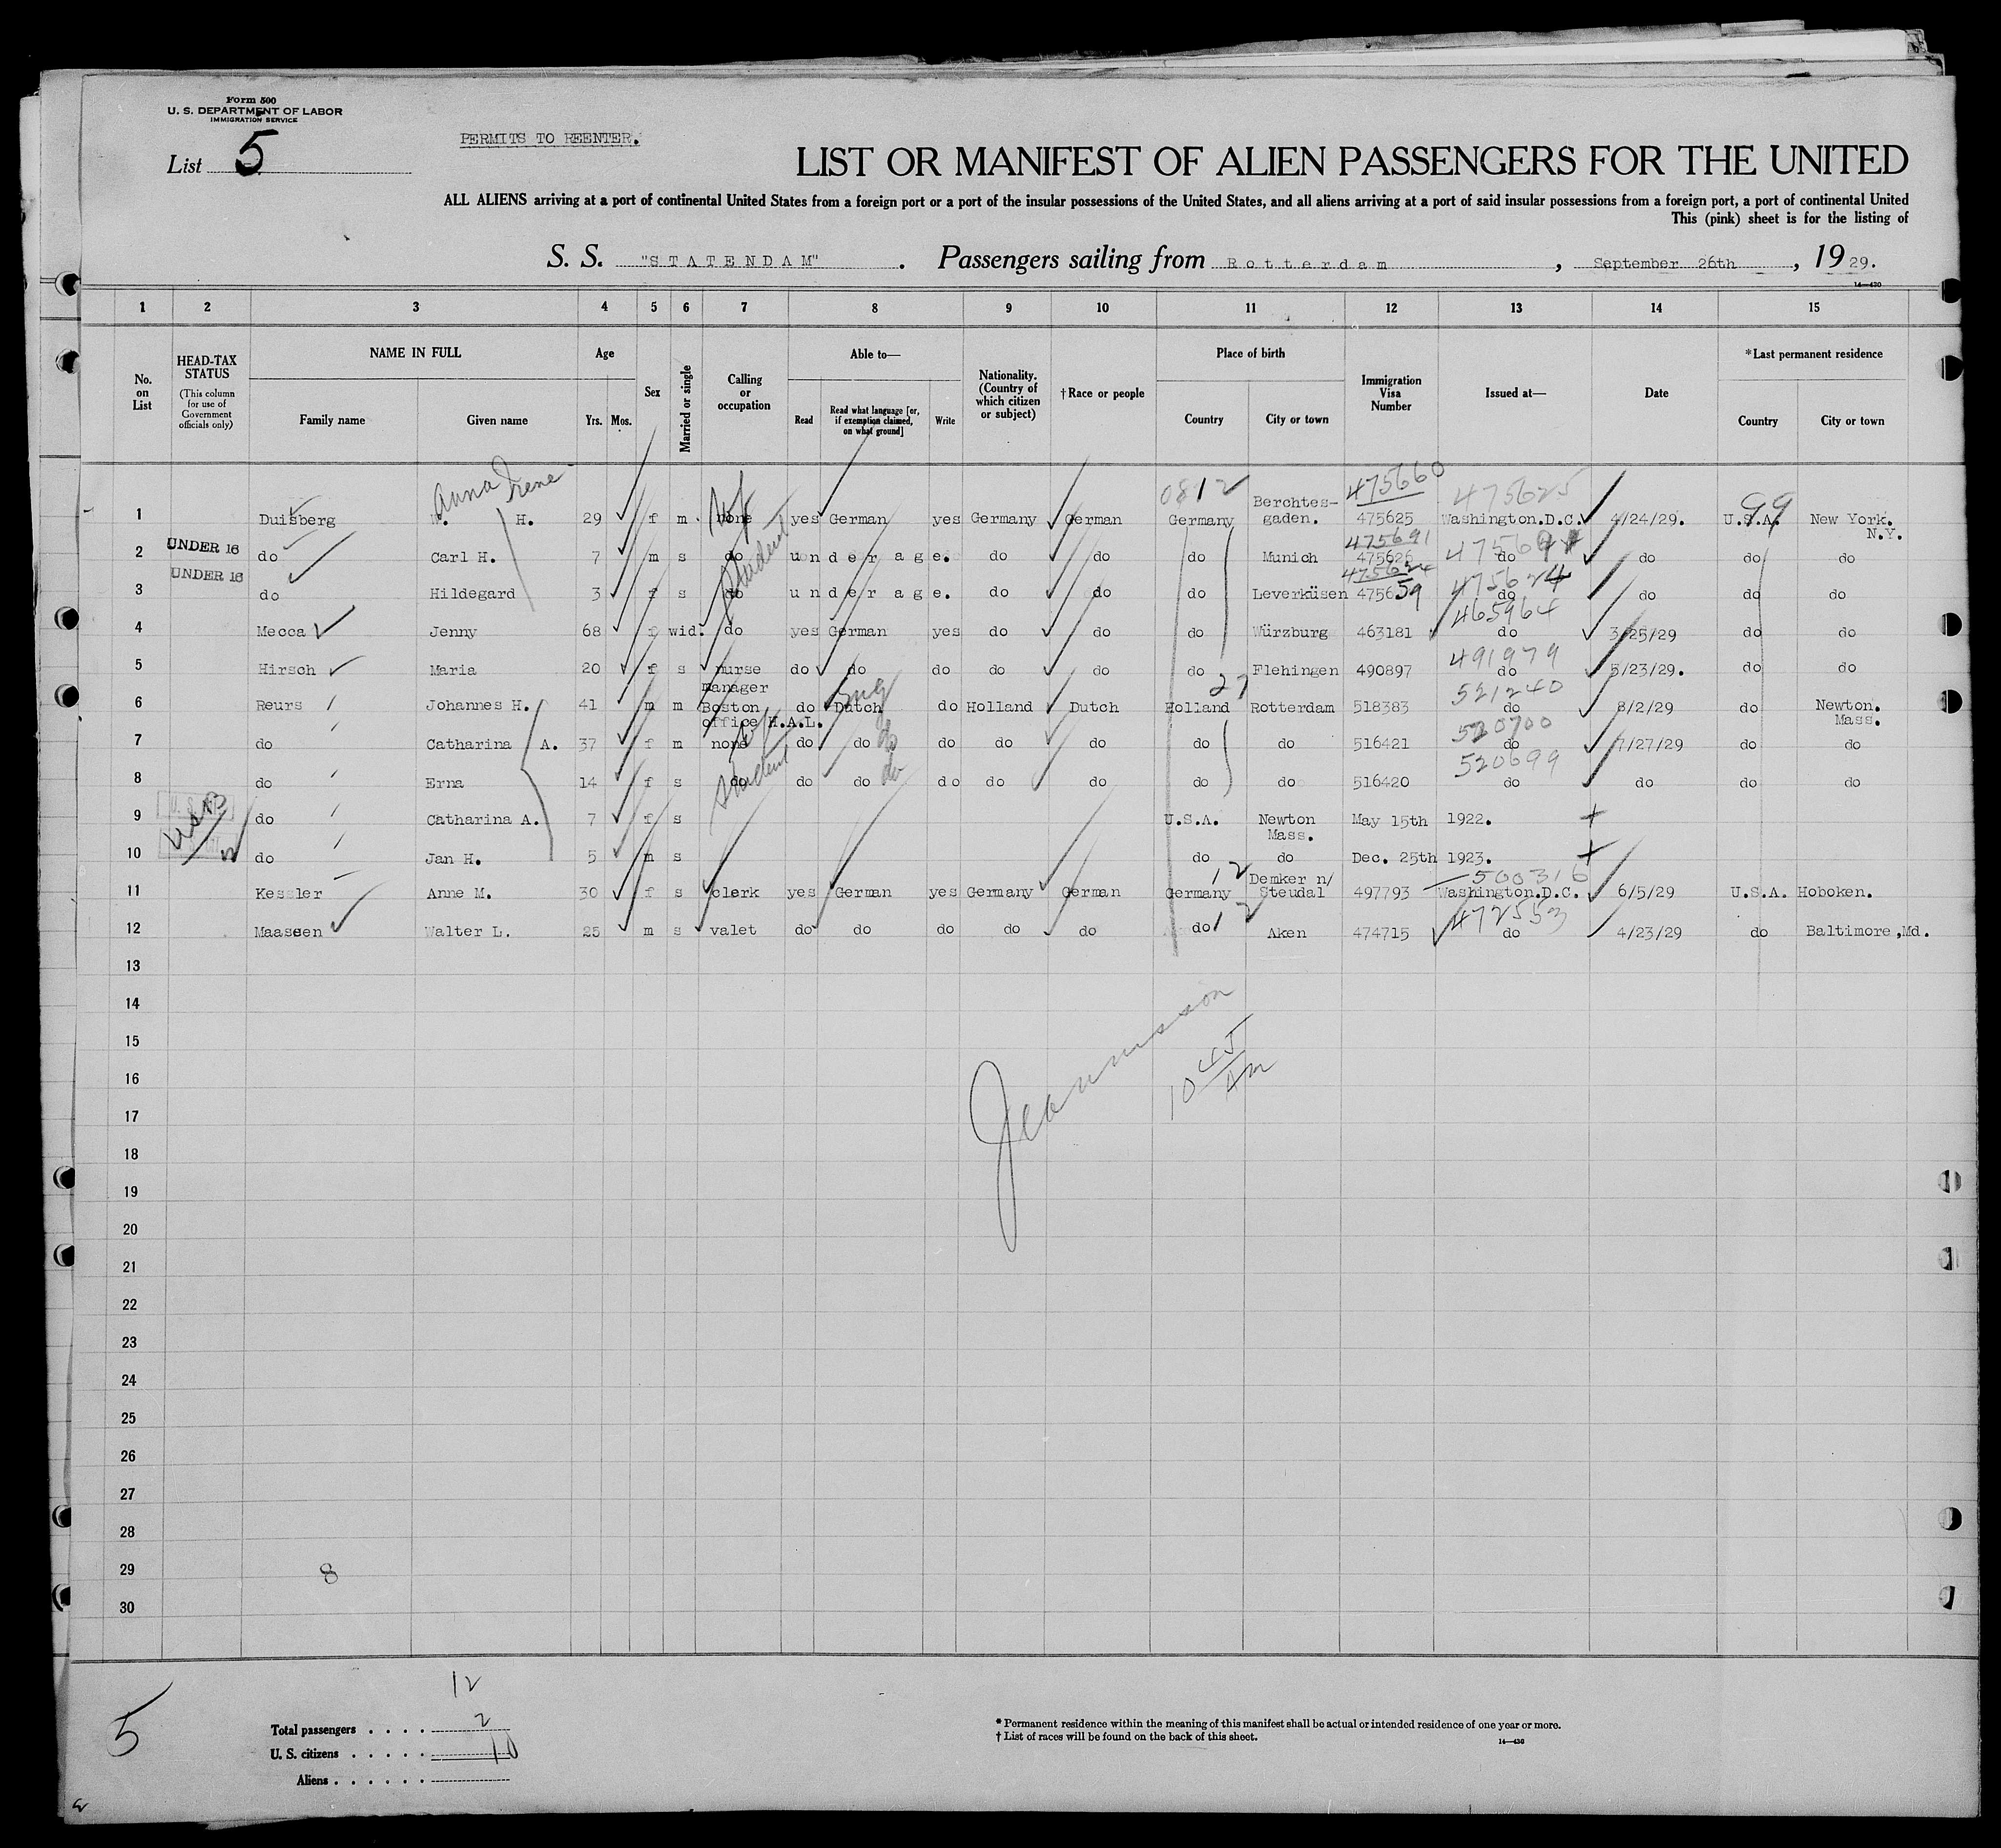 Form 500
U. S. DEPARTMENT OF LABOR
IMMIGRATION SERVICE
List 5
PERMITS TO REENTER.
LIST OR MANIFEST OF ALIEN PASSENGERS FOR THE UNITED
ALL ALIENS arriving at a port of continental United States from a foreign port or a port of the insular possessions of the United States, and all aliens arriving at a port of said insular possessions from a foreign port, a port of continental United
This (pink) sheet is for the listing of
S. S. "STATENDAM". Passengers sailing from Rotterdam, September 26th, 1929.
14—430
1 2 3 4 5 6 7 8 9 10 11 12 13 14 15
No. on List
HEAD-TAX STATUS (This column for use of Government officials only)
NAME IN FULL Family name Given name
Age Yrs. Mos.
Sex
Married or single
Calling or occupation
Able to— Read Read what language [or, if exemption claimed, on what ground] Write
Nationality. (Country of which citizen or subject)
† Race or people
Place of birth Country City or town
Immigration Visa Number
Issued at—
Date
* Last permanent residence Country City or town
Anna Irene 0812 475660 475625 99
1 Duisberg H. 29 f m. none yes German yes Germany German Germany Berchtes-gaden. 475625 Washington.D.C. 4/24/29. U.S.A. New York. N.Y.
475691
2 UNDER 16 do Carl H. 7 m s do student under age. do do do Munich 475626 do do do do
475624 475624
3 UNDER 16 do Hildegard 3 f s do under age. do do do Leverküsen 475659 do do do do
465964
4 Mecca Jenny 68 f wid. do yes German yes do do do Würzburg 463181 do 3/25/29 do do
491979
5 Hirsch Maria 20 f s nurse do do do do do do Flehingen 490897 do 5/23/29. do do
27 521240
6 Reurs Johannes H. 41 m m manager Boston office H.A.L. do Dutch Eng do Holland Dutch Holland Rotterdam 518383 do 8/2/29 do Newton. Mass.
520700
7 do Catharina A. 37 f m none do do do do do do do do 516421 do 7/27/29 do do
520699
8 do Erna 14 f s do student do do do do do do do do 516420 do do do do
9 USB do Catharina A. 7 f s U.S.A. Newton Mass. May 15th 1922.
10 do Jan H. 5 m s do do Dec. 25th 1923.
12 500316
11 Kessler Anne M. 30 f s clerk yes German yes Germany German Germany Demker n/ Steudal 497793 Washington.D.C. 6/5/29 U.S.A. Hoboken.
12 472553
12 Maassen Walter L. 25 m s valet do do do do do do Aken 474715 do 4/23/29 do Baltimore,Md.
13
14
15
10 45 AM
16
17
18
19
20
21
22
23
24
25
26
27
28
29 8
30
5
12
Total passengers . . . . 2
U. S. citizens . . . . . 10
Aliens . . . . . .
* Permanent residence within the meaning of this manifest shall be actual or intended residence of one year or more.
† List of races will be found on the back of this sheet.
14—430